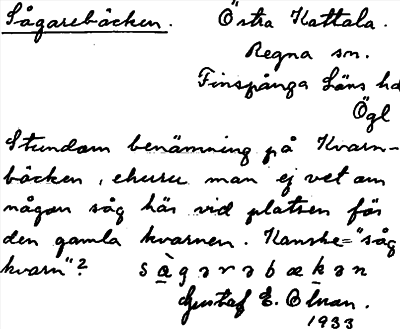 Sågarebäcken. Östra Kattala.
Regna sn.
Finspånga läns hd
Ögl
Stundom benämning på Kvarn-
bäcken, ehuru man ej vet om
någon såg här vid platsen för
den gamla kvarnen. Kanske = "såg
kvarn"? sàgərəbækən
Gustaf E.
1933